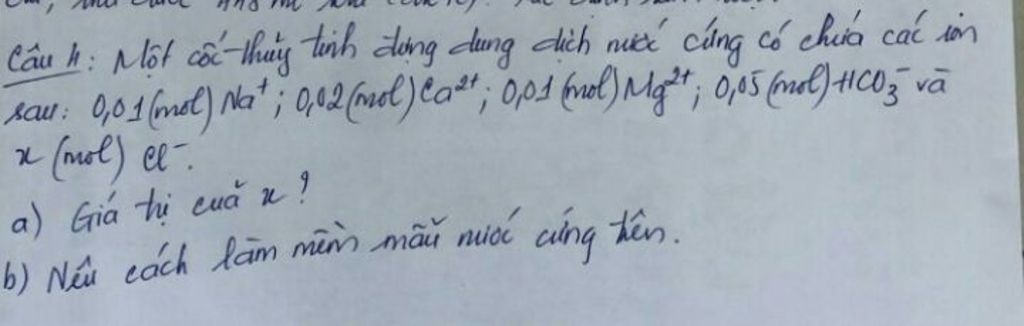 Câu 4: Một cốc thủy tinh đựng dung dịch nước cứng có chứa các ion
sau: 0,01 (mol) Na⁺; 0,02 (mol) Ca²⁺; 0,01 (mol) Mg²⁺; 0,05 (mol) HCO₃⁻ và
x (mol) Cl⁻.
a) Giá trị của x?
b) Nêu cách làm mềm mẫu nước cứng trên.